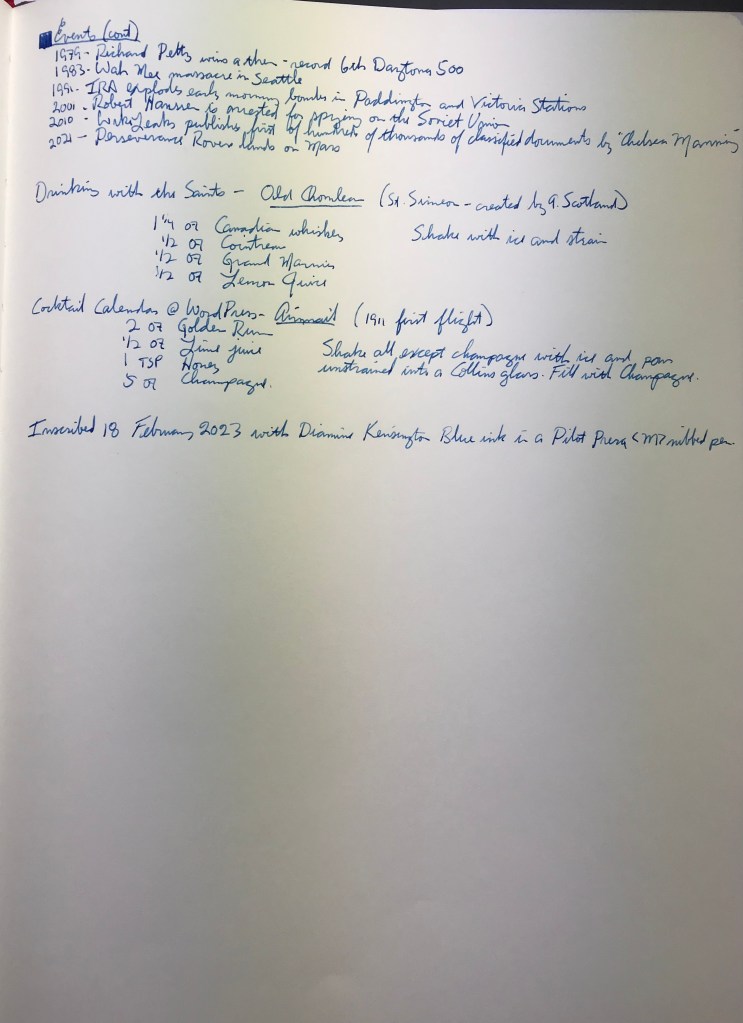 Events (cont)
1979- Richard Petty wins a then-record 6th Daytona 500
1983- Wah Mee massacre in Seattle
1991- IRA explodes early morning bombs in Paddington and Victoria Stations
2001- Robert Hanssen is arrested for spying on the Soviet Union
2010- WikiLeaks publishes first of hundreds of thousands of classified documents by "Chelsea Manning"
2021- Perseverance Rover lands on Mars
Drinking with the Saints - Old (St. Simeon - created by G. Scotland)
1 1/4 oz Canadian whiskey Shake with ice and strain
1/2 oz Cointreau
1/2 oz Grand Marnier
1/2 oz Lemon Juice
Cocktail Calendar @ WordPress- Airmail (1911 first flight)
2 oz Golden Rum
1/2 oz Lime juice Shake all except champagne with ice and pour
1 TSP Honey unstrained into a Collins glass. Fill with Champagne.
5 oz Champagne.
Inscribed 18 February 2023 with Diamine Kensington Blue ink in a Pilot Prera <M> nibbed pen